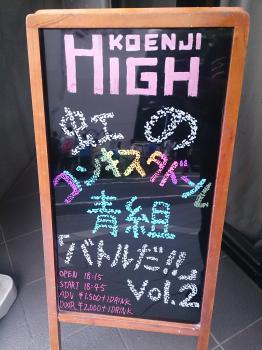 KOENJI
HIGH
虹の
コンキスタドール
青組
「バトルだ!!」
Vol.2
OPEN 18:15
START 18:45
ADV ¥1500+1DRINK
DOOR ¥2000+1DRINK